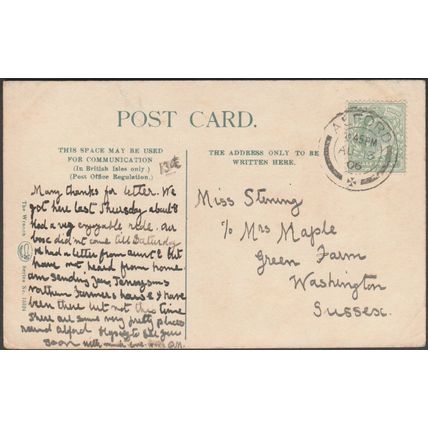 POST CARD.
THIS SPACE MAY BE USED
FOR COMMUNICATION
(In British Isles only.)
(Post Office Regulation.)
THE ADDRESS ONLY TO BE
WRITTEN HERE.
ALFORD
45PM
AU 13
06
Many thanks for letter. We
got here last Thursday about 8
had a very enjoyable ride. our
box didn't come till Saturday
have not heard from home
am sending you Tennysons
northern Farmers house I have
been there but not this time
There are some very pretty places
round Alford Hoping to see you
soon with much love from
Miss Stening
c/o Mrs Maple
Green Farm
Washington
Sussex.
The Wrench
Series No.